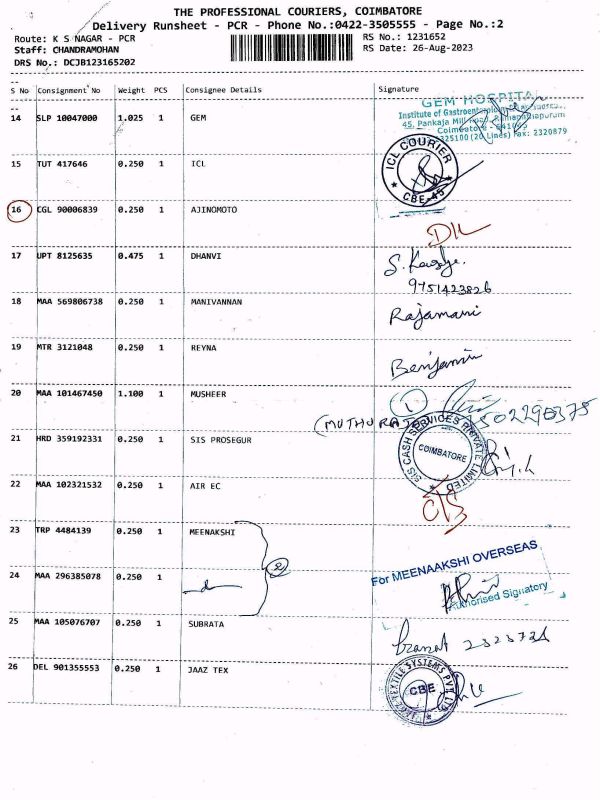 THE PROFESSIONAL COURIERS, COIMBATORE
Delivery Runsheet - PCR - Phone No.:0422-3505555 - Page No.:2
Route: K S NAGAR - PCR RS No.: 1231652
Staff: CHANDRAMOHAN RS Date: 26-Aug-2023
DRS No.: DCJB123165202
S No Consignment No Weight PCS Consignee Details Signature
GEM HOSPITAL
14 SLP 10047000 1.025 1 GEM
Institute of
45, Pankaja Mill Ramanathapuram
Coimbatore
325100 (20 Lines) Fax: 2320879
15 TUT 417646 0.250 1 ICL
ICL COURIER
CBE-45
16 CGL 90006839 0.250 1 AJINOMOTO
17 UPT 8125635 0.475 1 DHANVI
9751423826
18 MAA 569806738 0.250 1 MANIVANNAN Rajamani
19 MTR 3121048 0.250 1 REYNA Benjamin
20 MAA 101467450 1.100 1 MUSHEER
(MUTHURAJ
21 HRD 359192331 0.250 1 SIS PROSEGUR
SIS CASH SERVICES PRIVATE LIMITED
COIMBATORE
22 MAA 102321532 0.250 1 AIR EC
23 TRP 4484139 0.250 1 MEENAKSHI
2
For MEENAAKSHI OVERSEAS
24 MAA 296385078 0.250 1
Authorised Signatory
25 MAA 105076707 0.250 1 SUBRATA
26 DEL 901355553 0.250 1 JAAZ TEX
TEXTILE SYSTEMS PVT LTD
CBE